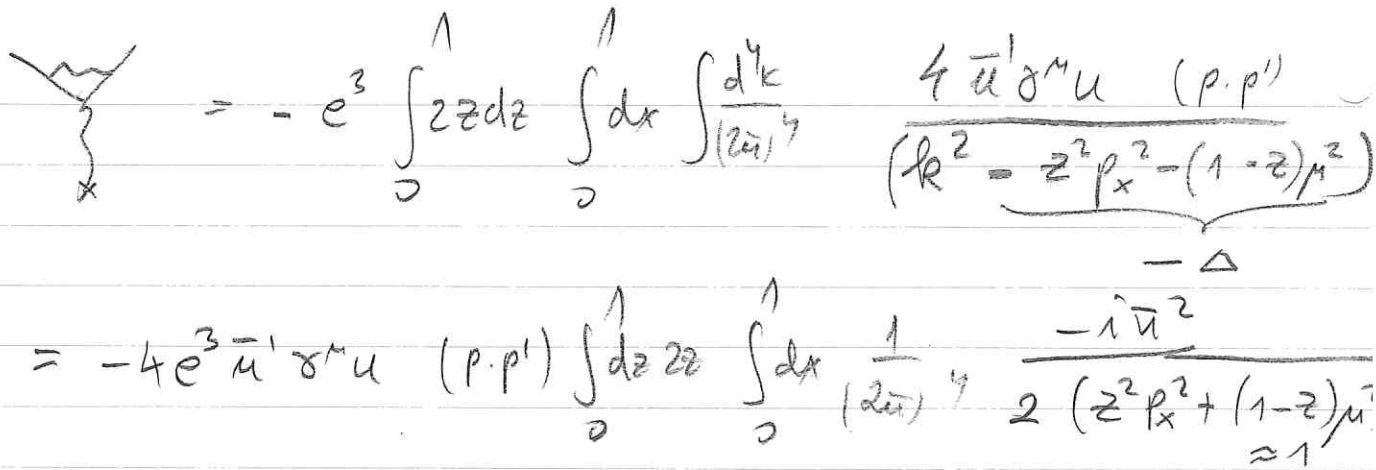 = - e³ ∫₀¹ 2z dz ∫₀¹ dx ∫ d⁴k/(2π)⁴ 4 ū' γ^μ u (p·p') / (k² - z² p_x² - (1-z)μ²)
- Δ
= - 4e³ ū' γ^μ u (p·p') ∫₀¹ dz 2z ∫₀¹ dx 1/(2π)⁴ -iπ² / 2 (z² p_x² + (1-z)μ²
≈ 1